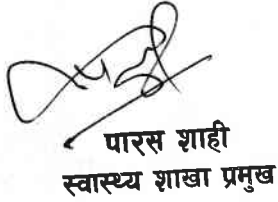 पारस शाही
स्वास्थ्य शाखा प्रमुख